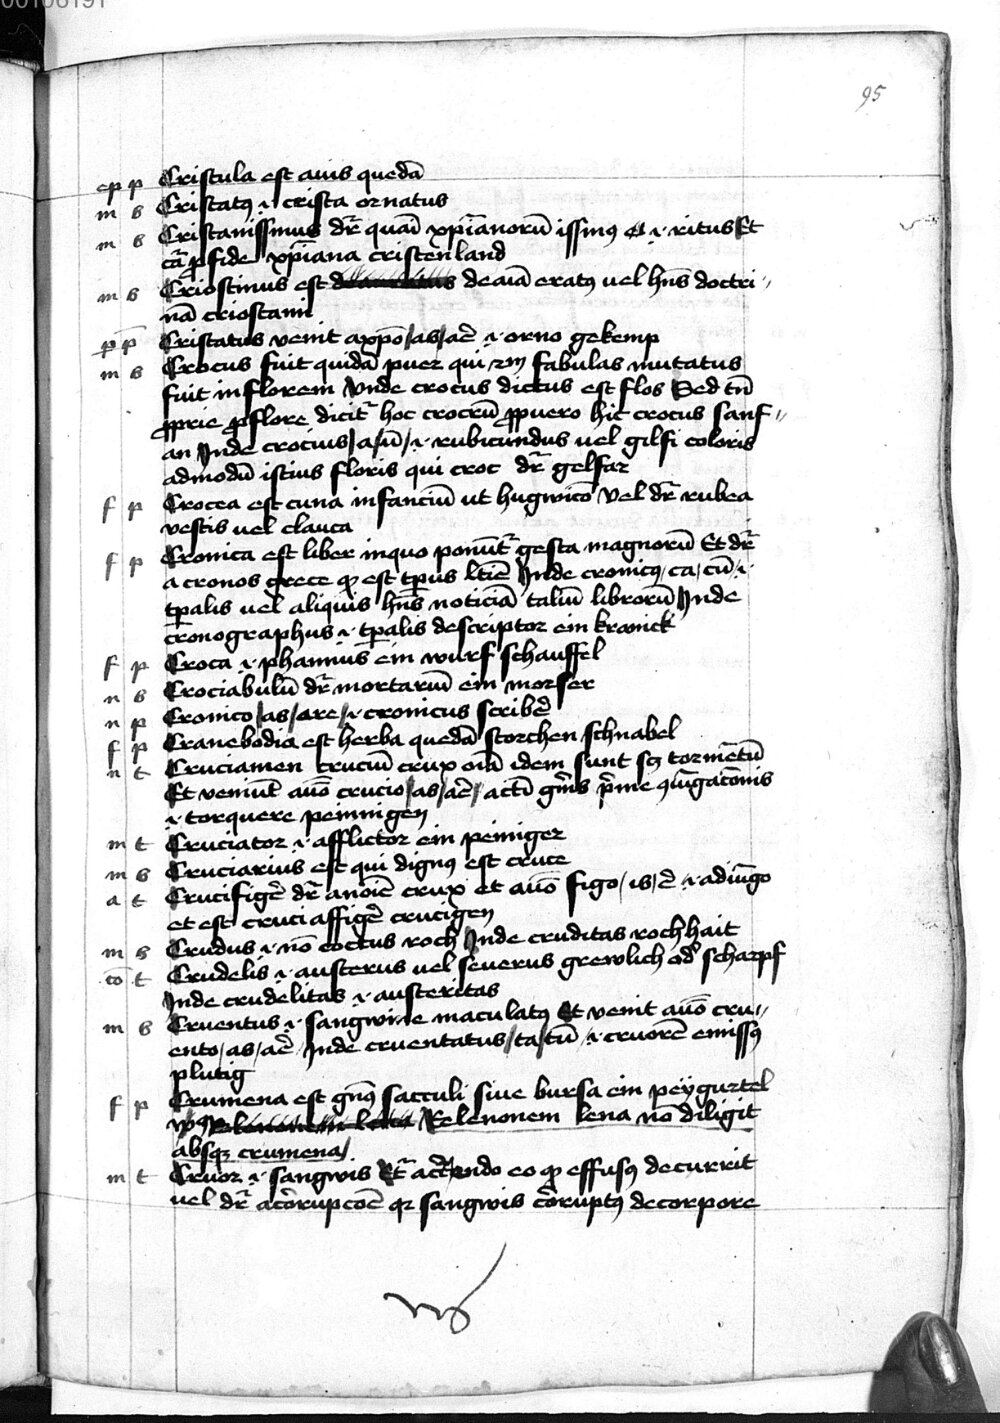 00106191
95
ep p Cristula est auis quedā
m s Cristatꝯ .i. crista ornatus
m s Cristianissimus dr̄ quā xp̄ianorū issimꝯ .i. ritus Et
cā fide xp̄iana cristenland
m s Criostinus est de aīa eratꝯ uel hn̄s doctri
nā criostami
p p Cristatus venit a xpō / as / aē .i. orno gekemp
m s Crocus fuit quidā puer qui fabulas mutatus
fuit in florem Vnde crocus dictus est flos Sed tn̄
ꝓprie ꝓ flore dicit᷑ hoc crocrū uero hic crocus sanf
an Inde crocius / a / ū / .i. rubicundus uel gilfi coloris
admodū istius floris qui croc dr̄ gelfar
f p Crocea est cuna infanciū ut hugwicō Vel dr̄ rubea
vestis uel clauca
f p Cronica est liber in quo ponūt᷑ gesta magnorū Et dr̄
a cronos grece ꝙ est tp̄us ltīe Inde cronicꝯ / ca / cū / .i.
tp̄alis uel aliquis hn̄s noticiā taliū librorū Inde
cronographus .i. tp̄alis descriptor ein kronick
f p Croca .i. phannus ein wurf schauffel
n s Crociabulū dr̄ mortariū ein morser
n p Cronico / as / are / .i. cronicus scribē
f p Cranebodia est herba quedā storchen schnabel
n t Cruciamen cruciū crux oīa idem sunt scꝫ tormētū
Et veniūt auō crucio / as / aē / actī gn̄is p̄me 9iūgacōnis
.i. torquere peinigen
m t Cruciator .i. afflictor ein peiniger
m s Cruciarius est qui dignꝯ est cruce
a t Crucifigē dr̄ a noīe crux et auō figo / is / ē .i. adiūgo
et est cruci affigē crucigen
m s Crudus .i. nō coctus roch Inde cruditas rochhait
cō t Crudelis .i. austerus uel seuerus grewlich od̄ scharpf
Inde crudelitas .i. austeritas
m s Cruentus .i. sangwine maculatꝯ Et venit auō cru
ento / as / aē / Inde cruentatus / ta / tū .i. cruorē emissꝯ
plutig
f p Crumena est gn̄s sacculi siue bursa ein peÿgurtel
Relenonem lena nō diligit
absqꝫ crumena /
m t Cruor .i. sangwis Et᷑ endo eo ꝙ effusꝯ decurrit
uel dr̄ a corrupcōe qꝫ sangwis corruptꝯ de corpore